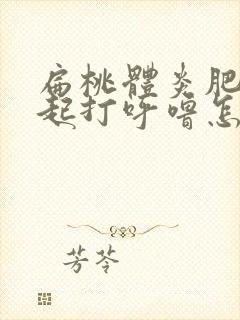 扁桃體炎肥
起打呼嚕怎
芳苓